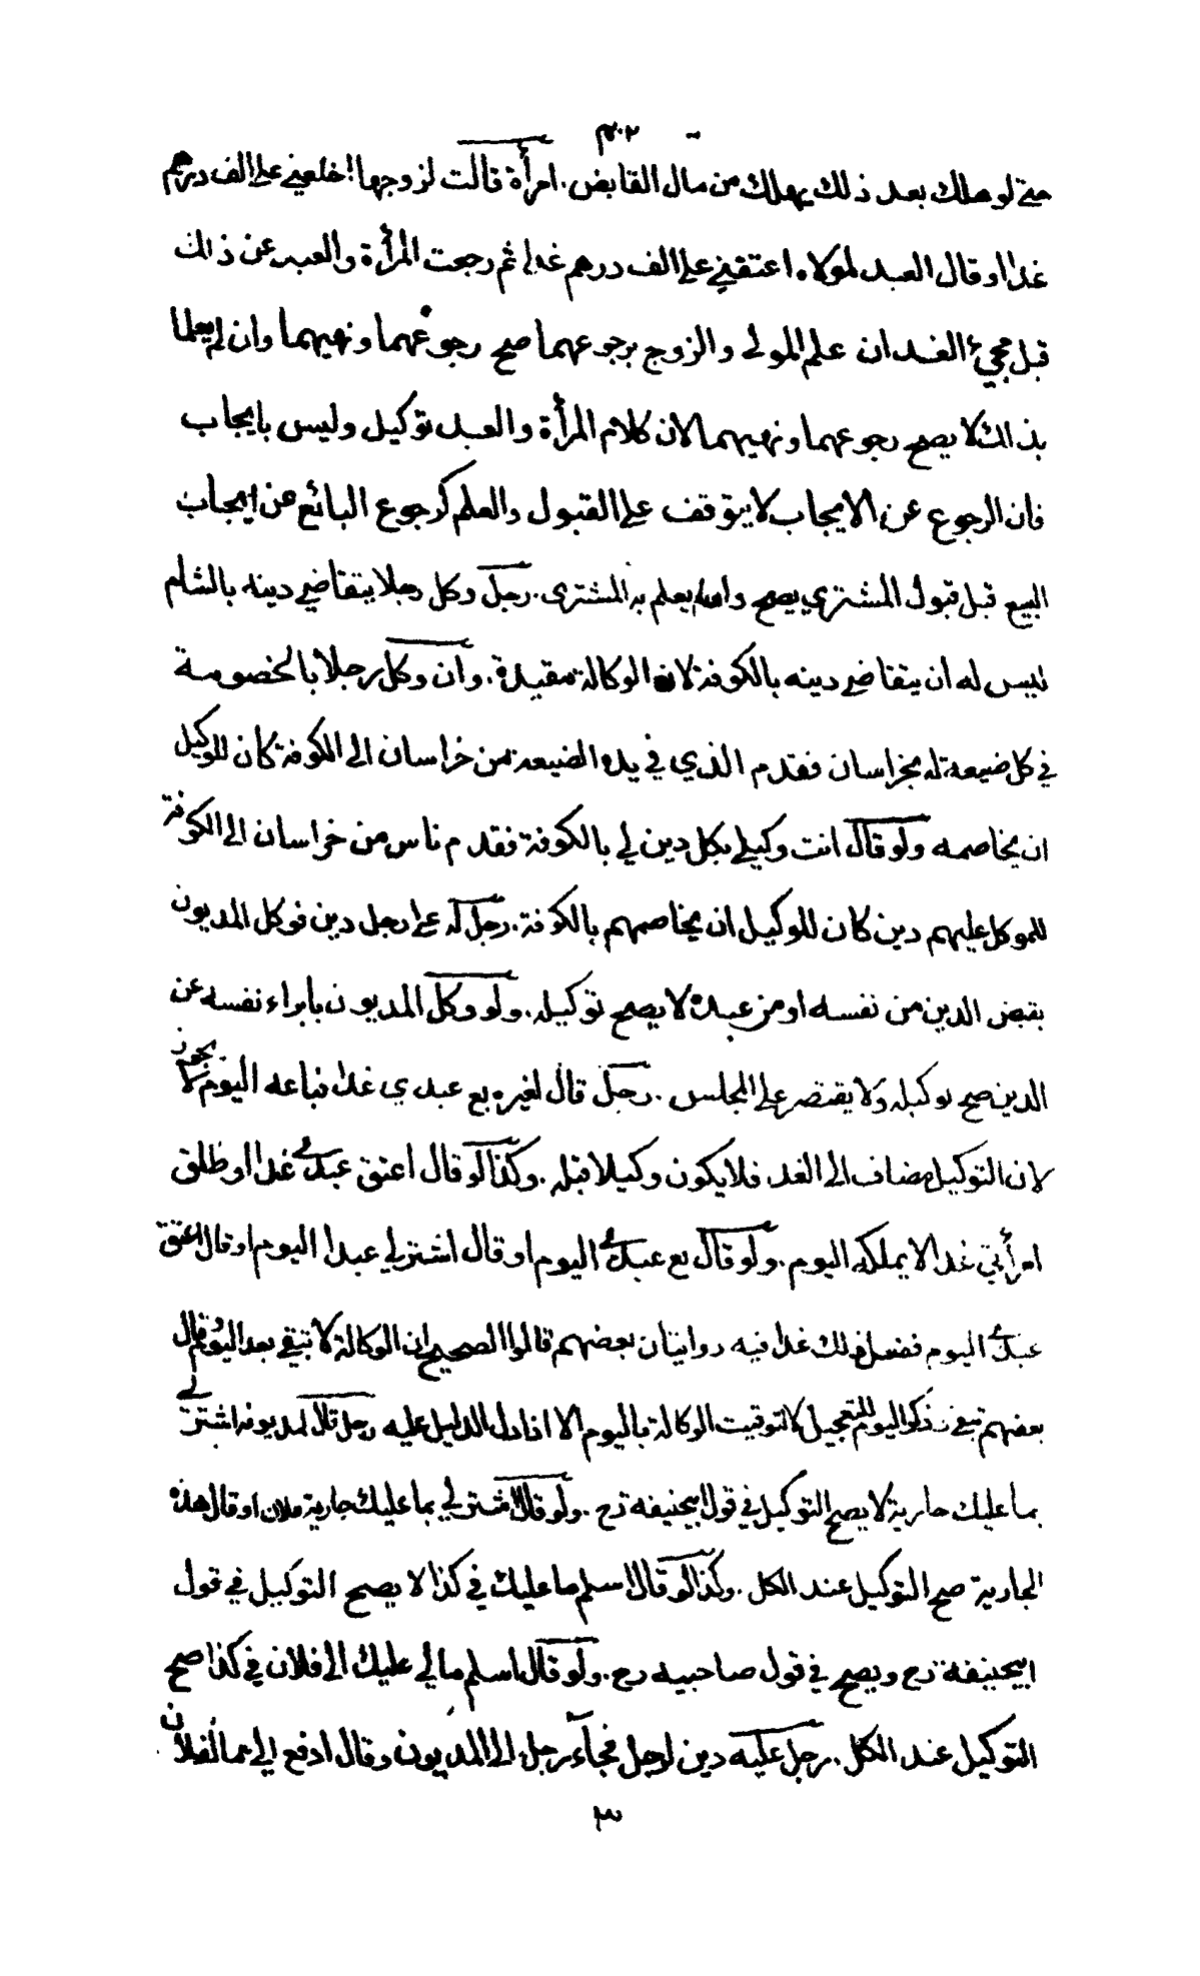 حتى لو هلك بعد ذلك يهلك من مال القابض. امرأة قالت لزوجها اخلعني على الف درهم
غدا او قال العبد لمولاه اعتقني على الف درهم غدا ثم رجعت المرأة والعبد عن ذلك
قبل مجيء الغد ان علم المولى والزوج برجوعهما صح رجوعهما ونهيهما وان لم يعلما
بذلك لا يصح رجوعهما ونهيهما لان كلام المرأة والعبد توكيل وليس بايجاب
فان الرجوع عن الايجاب لا يتوقف على القبول والعلم كرجوع البائع عن ايجاب
البيع قبل قبول المشتري يصح وان لم يعلم به المشترى. رجل وكل رجلا يتقاضي دينه بالشام
ليس له ان يتقاضي دينه بالكوفة لان الوكالة مقيدة. وان وكل رجلا بالخصومة
في كل ضيعة له بخراسان فقدم الذي في يده الضيعة من خراسان الى الكوفة كان للوكيل
ان يخاصمه ولو قال انت وكيلي بكل دين لي بالكوفة فقدم ناس من خراسان الى الكوفة
للموكل عليهم دين كان للوكيل ان يخاصمهم بالكوفة. رجل له على رجل دين فوكل المديون
بقبض الدين من نفسه او من عبده لا يصح توكيله. ولو وكل المديون بابراء نفسه عن
الدين صح توكيله ولا يقتصر على المجلس. رجل قال لغيره بع عبدي غدا فباعه اليوم لا يجوز
لان التوكيل مضاف الى الغد فلا يكون وكيلا قبله. وكذا لو قال اعتق عبدي غدا او طلق
امرأتي غدا لا يملكه اليوم. ولو قال بع عبدي اليوم او قال اشتر لي عبدا اليوم او قال اعتق
عبدي اليوم ففعل ذلك غدا فيه روايتان بعضهم قالوا الصحيح ان الوكالة لا تبقى بعد اليوم وقال
بعضهم تبقى وذكر اليوم للتعجيل لا لتوقيت الوكالة باليوم الا اذا دل الدليل عليه رجل قال لمديونه اشتر لي
بما عليك جارية لا يصح التوكيل في قول ابيحنيفة رح. ولو قال اشتر لي بما عليك جارية فلان او قال هذه
الجارية صح التوكيل عند الكل. وكذا لو قال اسلم ما عليك في كذا لا يصح التوكيل في قول
ابيحنيفة رح ويصح في قول صاحبيه رح. ولو قال اسلم مالي عليك الى فلان في كذا صح
التوكيل عند الكل. رجل عليه دين لرجل فجاء رجل الى المديون وقال ادفع الي ما لفلان